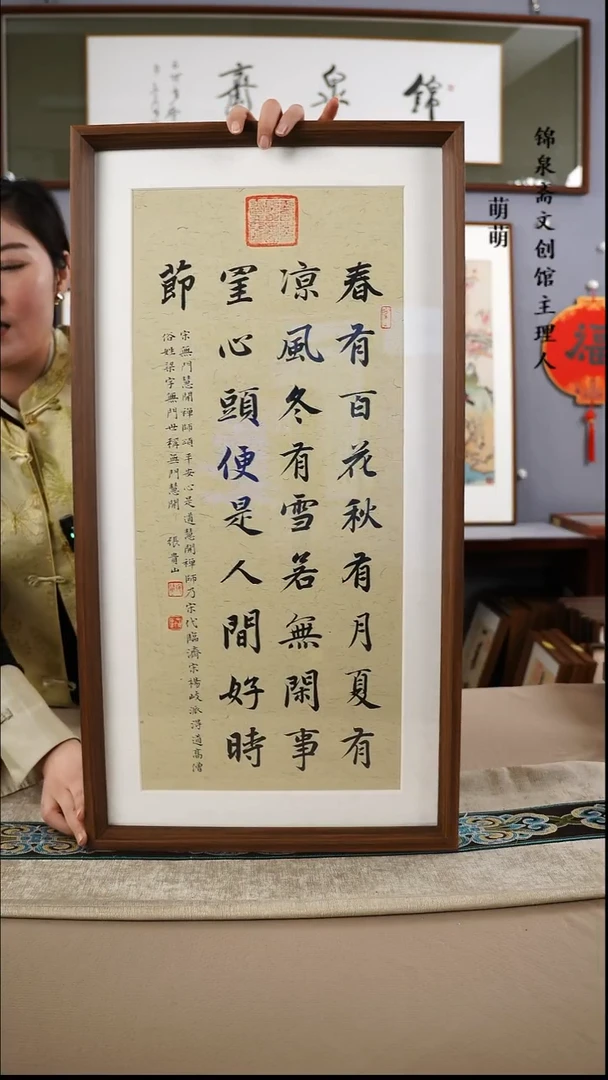 錦泉齋
锦泉斋文创馆主理人
萌萌
春有百花秋有月夏有
涼風冬有雪若無閑事
罣心頭便是人間好時
節
宋無門慧開禪師頌平安心是道慧開禪師乃宋代臨濟宗楊岐派得道高僧
俗姓梁字無門世稱無門慧開 張貴山
福